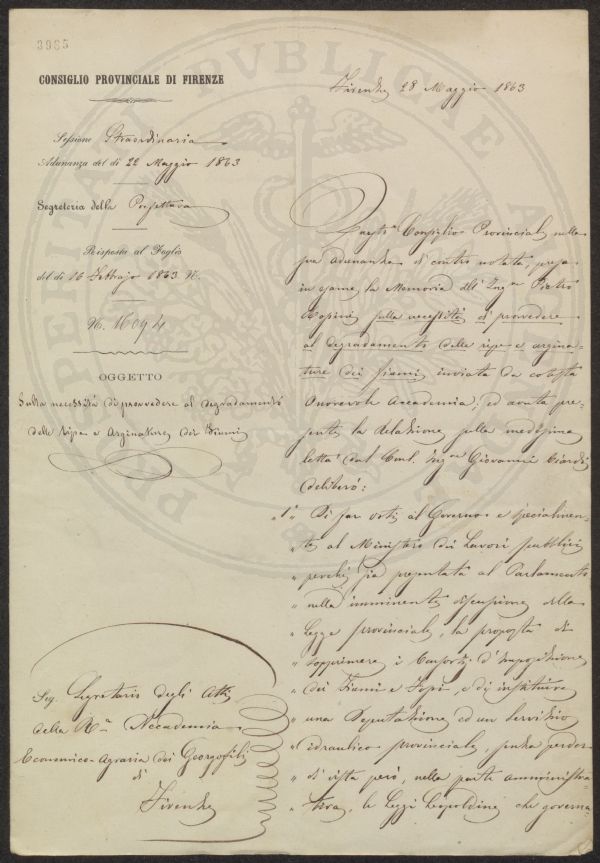 3985
CONSIGLIO PROVINCIALE DI FIRENZE
Sessione Straordinaria
Adunanza del dì 22 Maggio 1863
Segreteria della Prefettura
Risposta al Foglio
del dì 16 Febbrajo 1863 N.
N. 16094
OGGETTO
Sulla necessità di provvedere al degradamento
delle Ripe e Arginature dei Fiumi
Sig. Segretario degli Atti
della R.a Accademia
Economico-Agraria dei Georgofili
di
Firenze
Firenze 28 Maggio 1863
Questo Consiglio Provinciale nella
sua adunanza di contro notata, presa
in esame la Memoria dell' Ing.re Pietro
sulla necessità di provvedere
al degradamento delle ripe e argina-
ture dei fiumi inviata da cotesta
Onorevole Accademia; ed avuta pre-
sente la Relazione sulla medesima
letta dal Cons. Ing.re Giovanni
deliberò:
"1° Di far voti al Governo e specialmen-
" te al Ministero dei Lavori pubblici
" perchè sia presentata al Parlamento
" nella imminente discussione della
" Legge provinciale, la proposta di
" sopprimere i Consorzi d'Imposizione
" dei Fiumi e Fossi, e di instituire
" una Deputazione ed un Servizio
" idraulico provinciale, senza perder
" di vista però, nella parte amministra-
" tiva, le Leggi Leopoldine che governa-
PROSPERITATI PVBLICAE